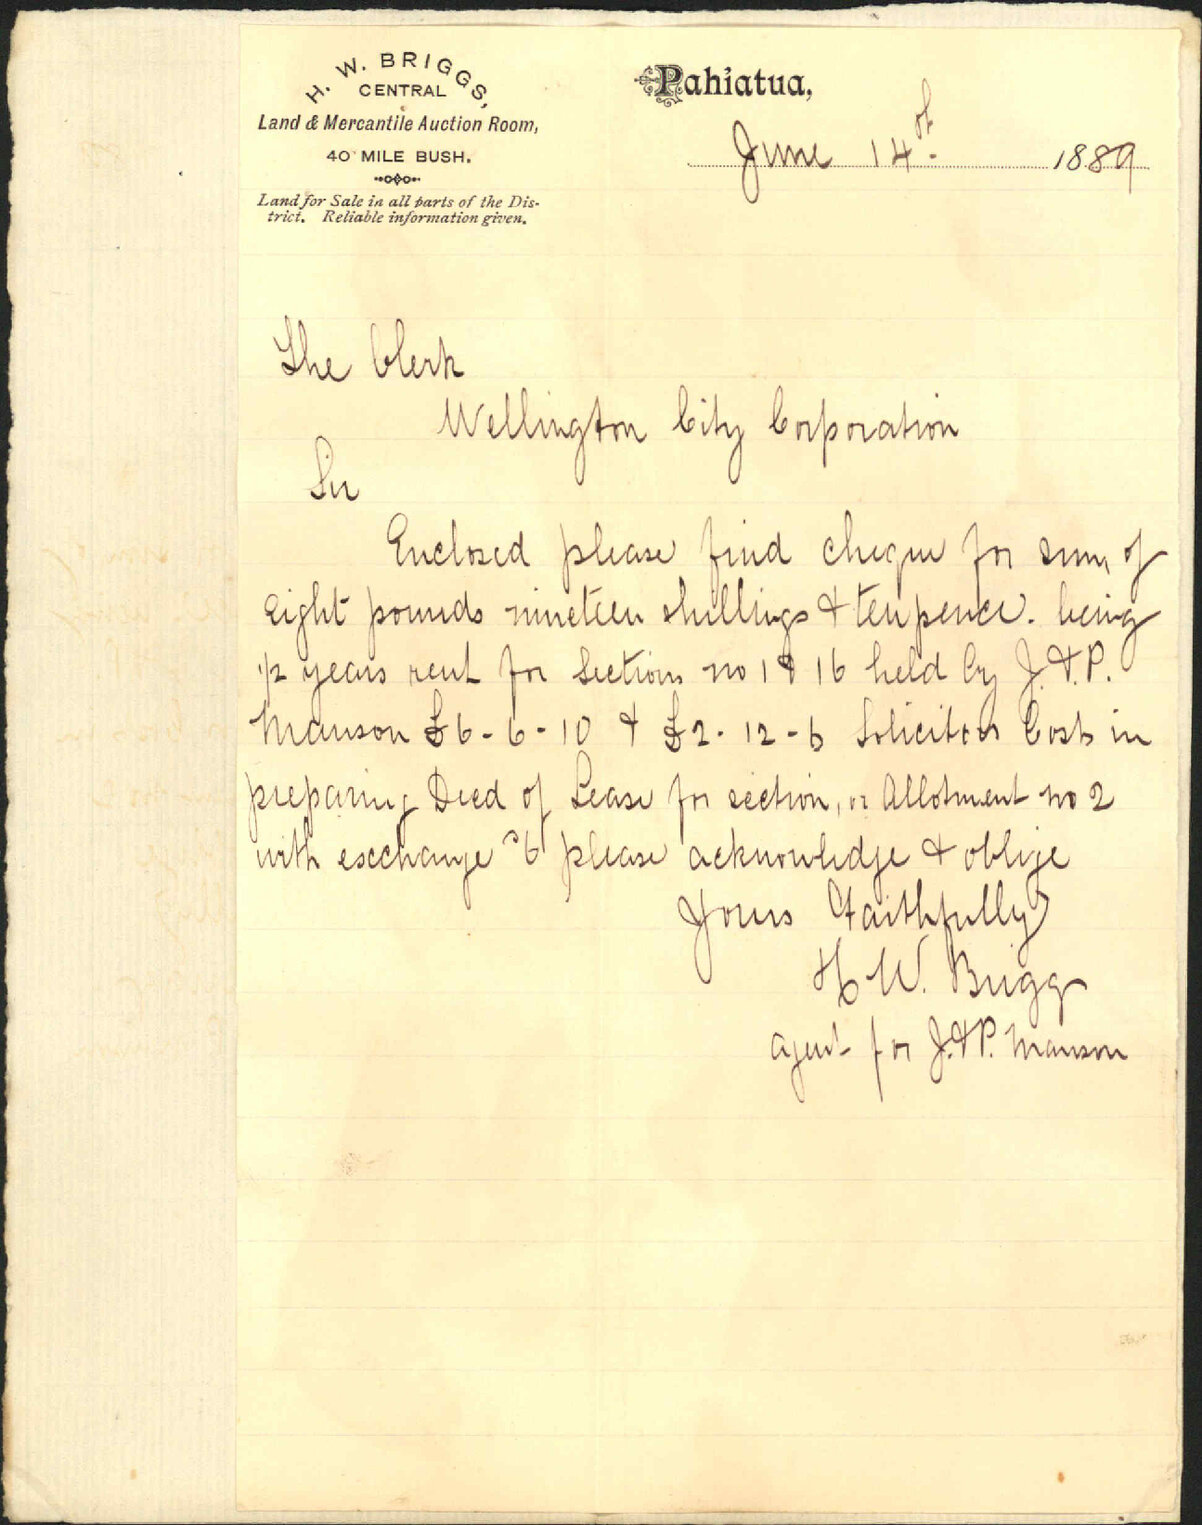 H. W. BRIGGS,
CENTRAL
Land & Mercantile Auction Room,
40 MILE BUSH.
Land for Sale in all parts of the Dis-
trict. Reliable information given.
Pahiatua,
June 14th 1889
The Clerk
Wellington City Corporation
Sir
Enclosed please find cheque for sum of
Eight pounds nineteen shillings & tenpence. being
1/2 years rent for Sections no 1 & 16 held by J. & P.
Manson £6-6-10 & £2-12-6 Solicitors Costs in
preparing Deed of Lease for section, or Allotment no 2
with exchange 6 please acknowledge & oblige
Yours Faithfully
H W. Briggs
Agent for J. & P. Manson